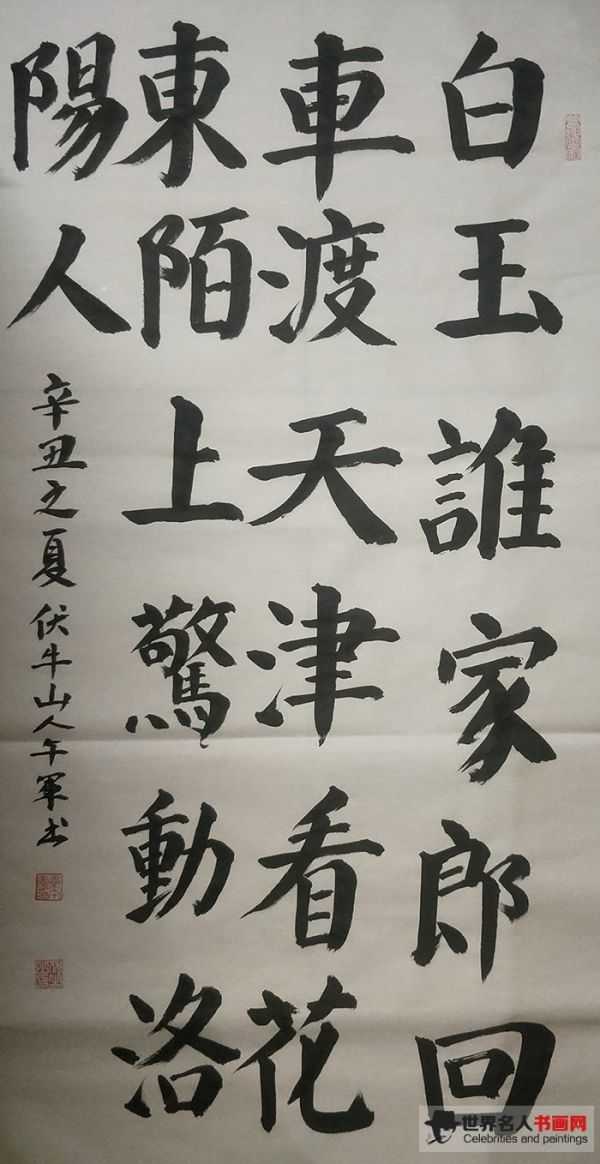 白玉誰家郎回
車渡天津看花
東陌上驚動洛
陽人
辛丑之夏伏牛山人午軍书
世界名人书画网
Celebrities and paintings